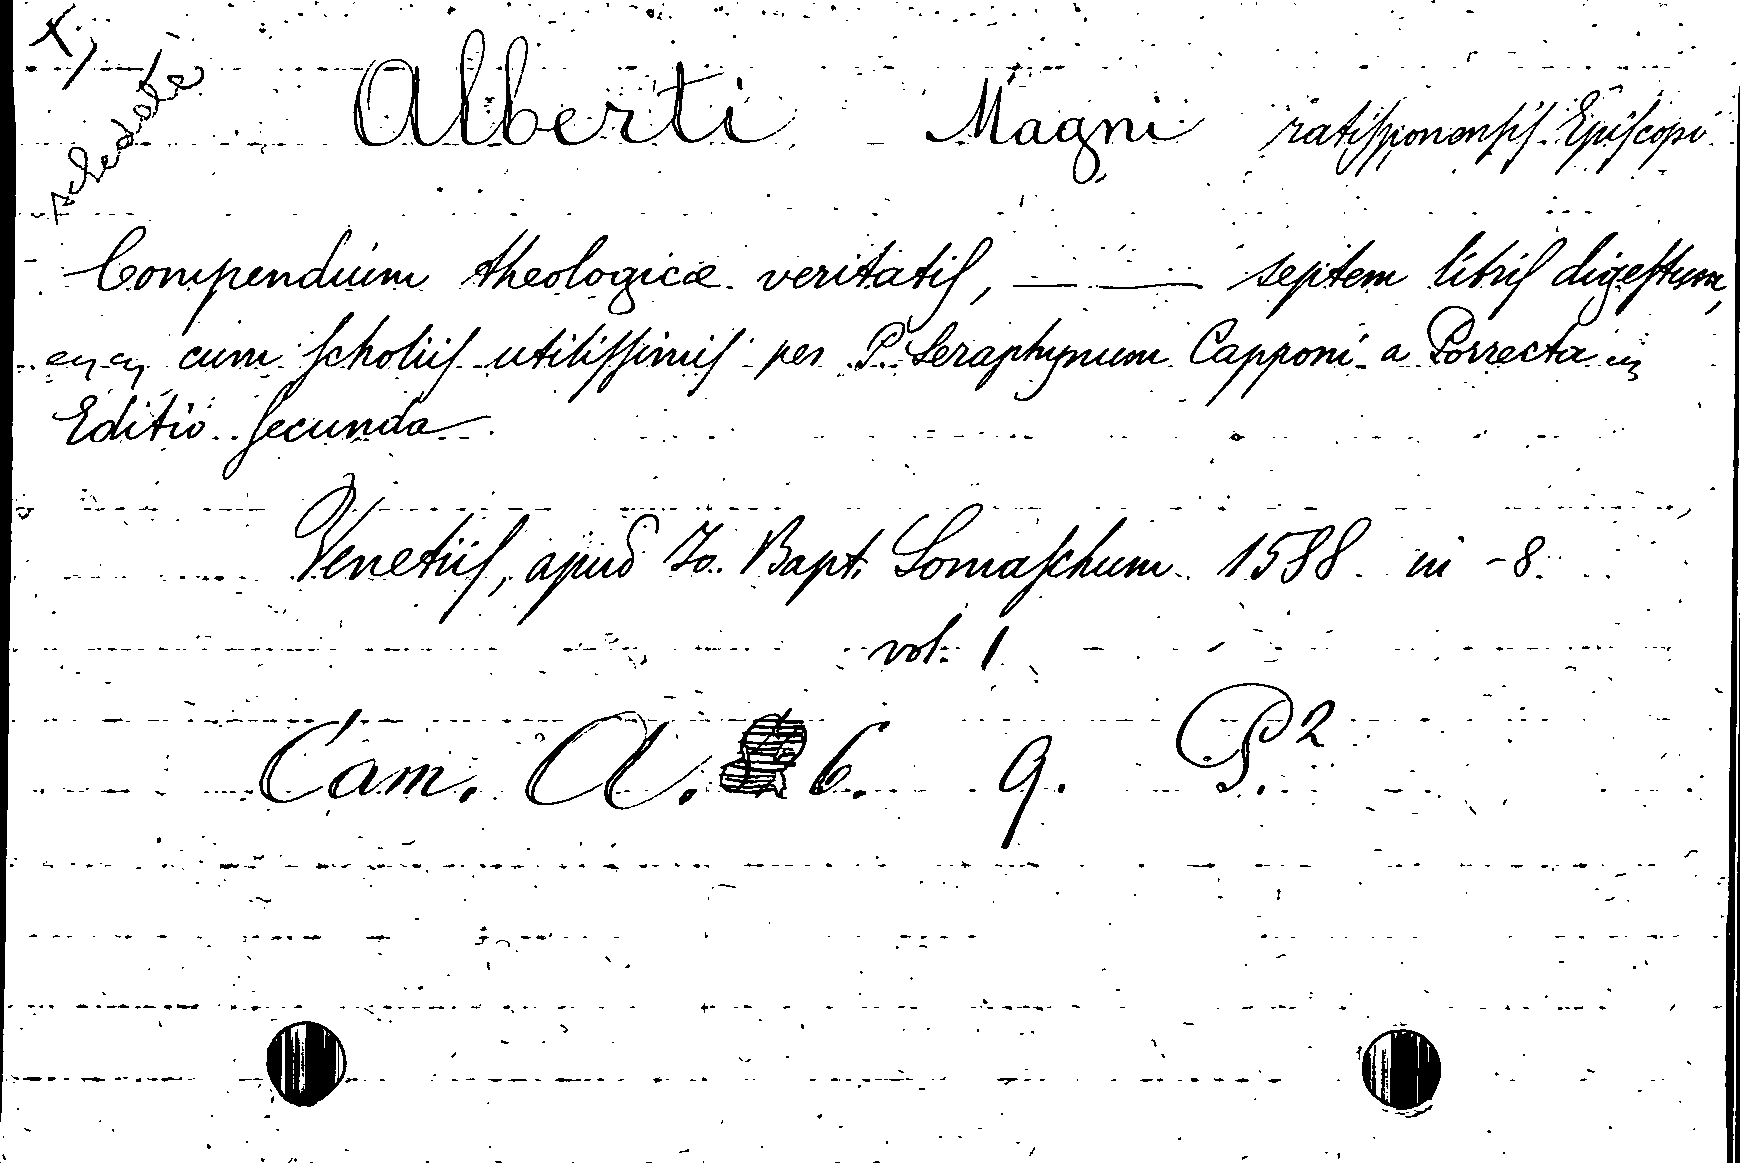 schedate
Alberti Magni ratisponensis Episcopi
Compendium theologicæ veritatis, ——— septem libris digestum,
cum scholiis utilissimis per P. Seraphynum Capponi a Porrecta
Editio secunda
Venetiis, apud Jo. Bapt. Somaschum 1588 in -8.
vol. 1
Cam. A. 6. 9. P.2